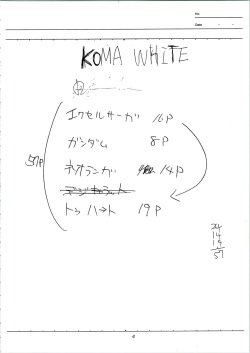 No.
Date
KOMA WHITE
エクセルサーガ 16P
ガンダム 8P
ネオランガ 14P
デジキャラット
トゥハート 19P
57P
24
14
19
57